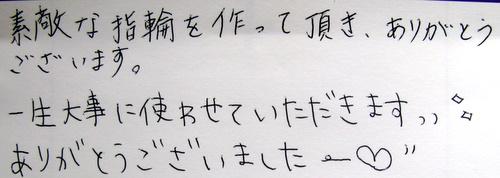 素敵な指輪を作って頂き、ありがとう
ございます。
一生大事に使わせていただきます、、
ありがとうございました ♡"